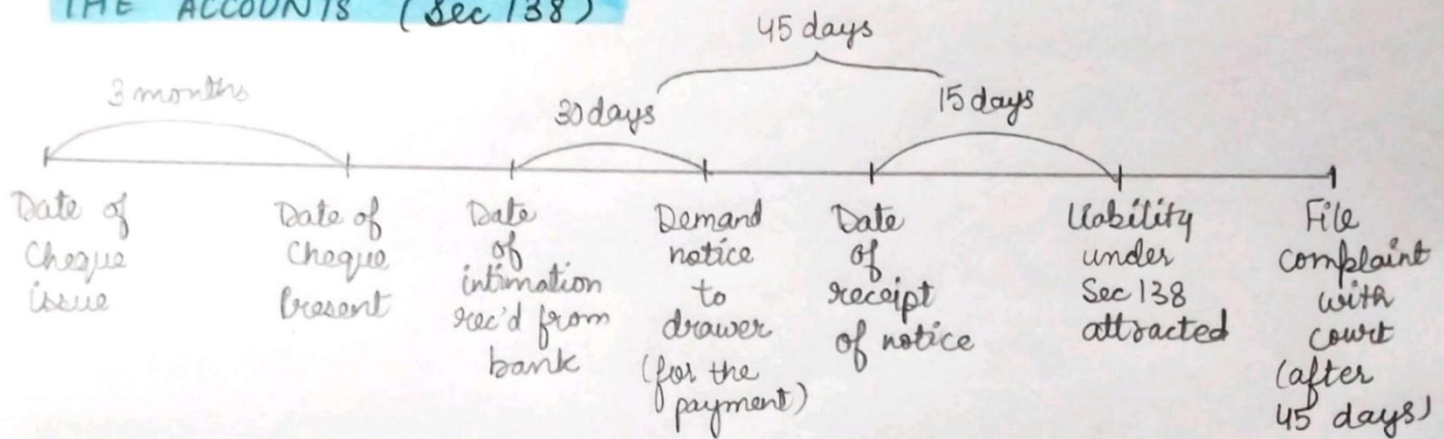 THE ACCOUNTS (Sec 138)
45 days
3 months
30 days
15 days
Date of
Cheque
issue
Date of
Cheque
Present
Date
of
intimation
rec'd from
bank
Demand
notice
to
drawer
(for the
payment)
Date
of
receipt
of notice
Liability
under
Sec 138
attracted
File
complaint
with
court
(after
45 days)